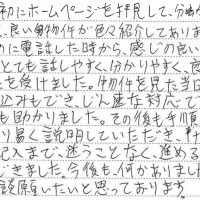 初にホームページを拝見して、分か
、良い物件が良く紹介してありま
めに電話した時から、感じの良い
とても話しやすく、分かりやすく、良
を受けました。物件を見た当日
込みもでき、じん速な対応で
も助かりました。その後も手順
り易く説明していただき、
記入まで、迷うことなく、進める
できました。今後も、何かありまし
談願いたいと思っております